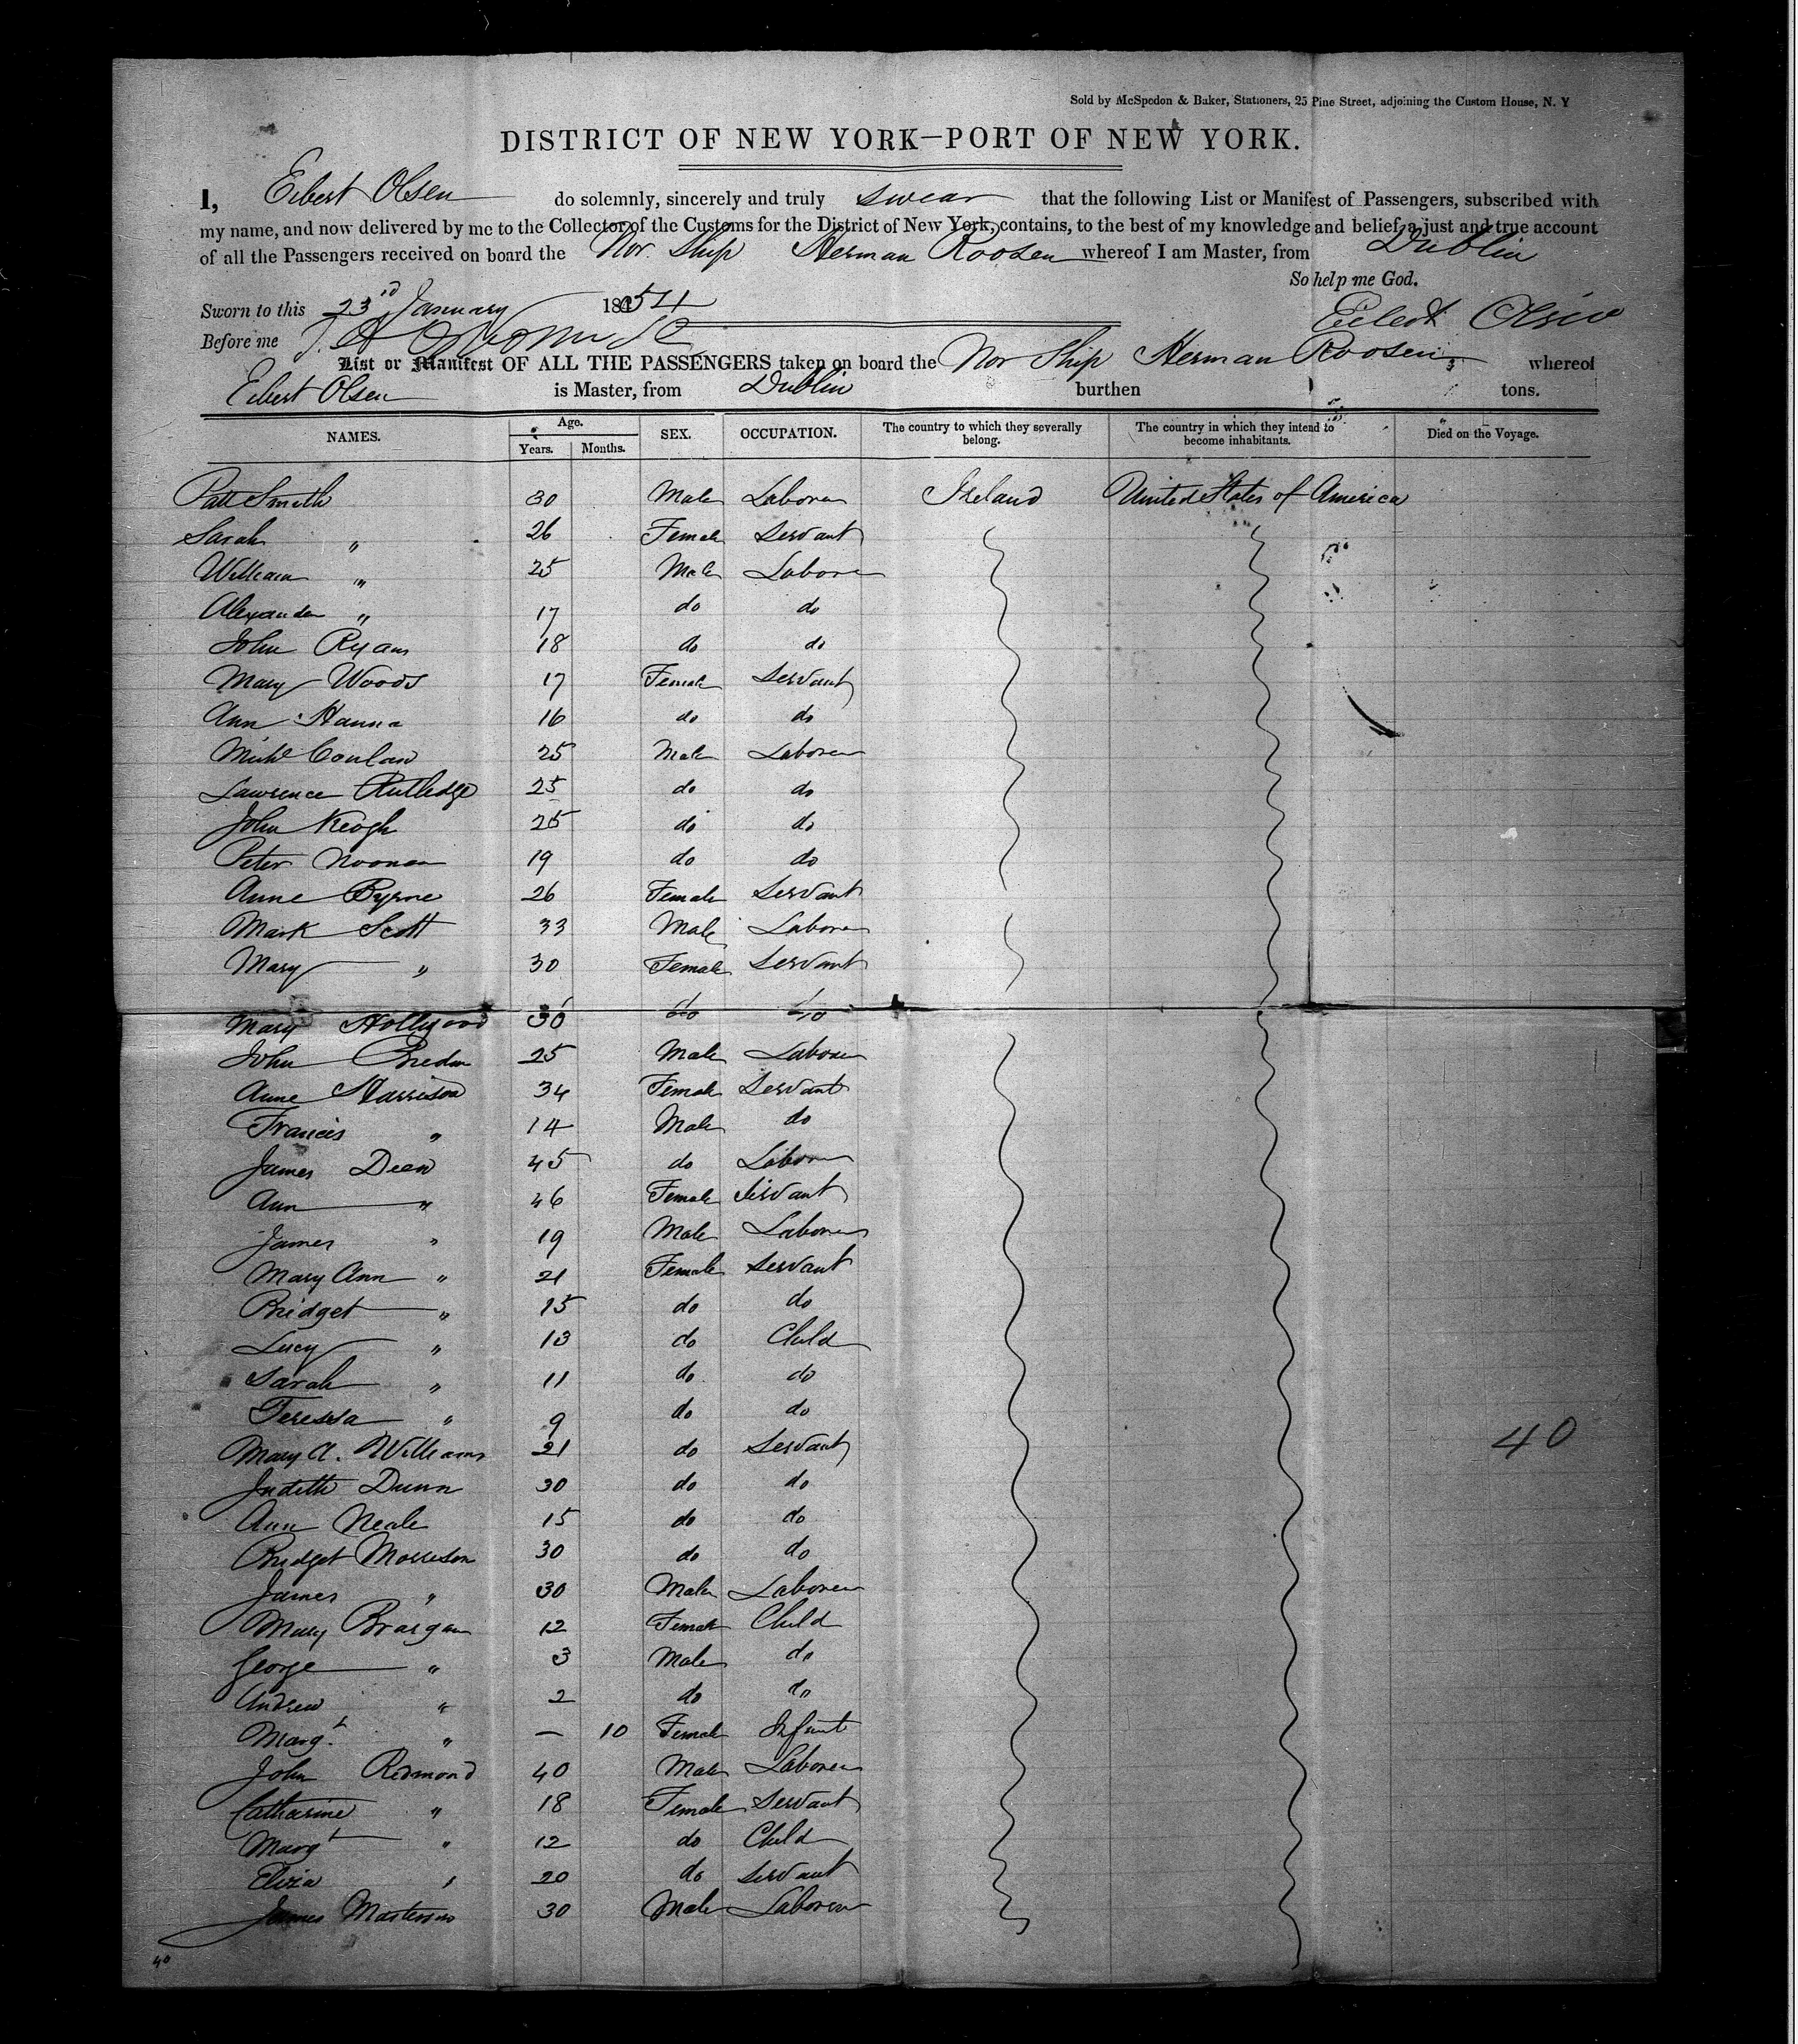 Sold by McSpedon & Baker, Stationers, 25 Pine Street, adjoining the Custom House, N. Y
DISTRICT OF NEW YORK—PORT OF NEW YORK.
I, Eilert Olsen do solemnly, sincerely and truly swear that the following List or Manifest of Passengers, subscribed with
my name, and now delivered by me to the Collector of the Customs for the District of New York, contains, to the best of my knowledge and belief, a just and true account
of all the Passengers received on board the Nor. Ship Herman Roosen whereof I am Master, from Dublin
So help me God.
Sworn to this 23rd January 1854
Eilert Olsen
Before me
List or Manifest OF ALL THE PASSENGERS taken on board the Nor Ship Herman Roosen whereof
Eilert Olsen is Master, from Dublin burthen tons.
NAMES. Age. Years. Months. SEX. OCCUPATION. The country to which they severally belong. The country in which they intend to become inhabitants. Died on the Voyage.
Patt Smith 30 Male Laborer Ireland United States of America
Sarah " 26 Female Servant
William " 25 Male Laborer
Alexander " 17 do do
John Ryan 18 do do
Mary Woods 17 Female Servant
Ann Hanna 16 do do
Michl Conlan 25 Male Laborer
Lawrence Rutledge 25 do do
John Keogh 25 do do
Peter Noonan 19 do do
Anne Byrne 26 Female Servant
Mark Scott 33 Male Laborer
Mary " 30 Female Servant
Mary Hollywood 30 do do
John 25 Male Laborer
Anne Harrison 34 Female Servant
Francis " 14 Male do
James Dean 45 do Laborer
Ann " 46 Female Servant
James " 19 Male Laborer
Mary Ann " 21 Female Servant
Bridget " 15 do do
Lucy " 13 do Child
Sarah " 11 do do
Teressa " 9 do do
40
Mary A. Williams 21 do Servant
Judith Dunn 30 do do
Ann Neale 15 do do
Bridget Morrison 30 do do
James " 30 Male Laborer
Mary Brangan 12 Female Child
George " 3 Male do
Andrew " 2 do do
Margt " — 10 Female Infant
John Redmond 40 Male Laborer
Catharine " 18 Female Servant
Margt " 12 do Child
Eliza " 20 do Servant
James Masterson 30 Male Laborer
40